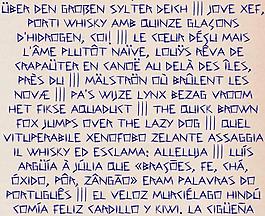 ÜBER DEN GROßEN SYLTER DEICH ||| JOVE XEF,
PORTI WHISKY AMB QUINZE GLAÇONS
D'HIDROGEN, COI! ||| LE CŒUR DÉÇU MAIS
L'ÂME PLUTÔT NAÏVE, LOUŸS RÊVA DE
CRAPAÜTER EN CANOË AU DELÀ DES ÎLES,
PRÈS DU ||| MÄLSTRÖN OÙ BRÛLENT LES
NOVÆ ||| PA'S WIJZE LYNX BEZAG VROOM
HET FIKSE AQUADUCT ||| THE QUICK BROWN
FOX JUMPS OVER THE LAZY DOG ||| QUEL
VITUPERABILE XENOFOBO ZELANTE ASSAGGIA
IL WHISKY ED ESCLAMA: ALLELUJA ||| LUÍS
ARGÜIA À JÚLIA QUE «BRAÇÕES, FÉ, CHÁ,
ÓXIDO, PÔR, ZÂNGÃO» ERAM PALAVRAS DO
PORTUGUÊS ||| EL VELOZ MURCIÉLAGO HINDÚ
COMÍA FELIZ CARDILLO Y KIWI, LA CIGÜEÑA